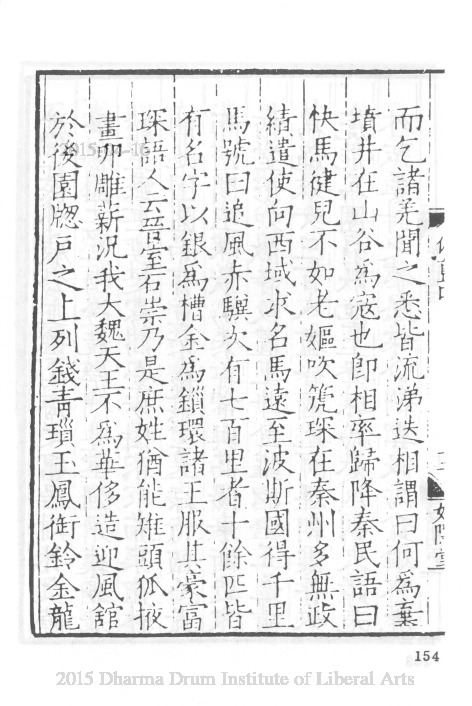 而乞諸羌聞之悉皆流涕迭相謂曰何爲棄
墳井在山谷爲寇也卽相率歸降秦民語曰
快馬健兒不如老嫗吹箎琛在秦州多無政
績遣使向西域求名馬遠至波斯國得千里
馬號曰追風赤驥次有七百里者十餘匹皆
有名字以銀爲槽金爲鎖環諸王服其豪富
琛語人云晉室石崇乃是庶姓猶能雉頭狐掖
畫卵雕薪況我大魏天王不爲華侈造迎風舘
於後園牕戶之上列錢青瑣玉鳳銜鈴金龍
154
2015 Dharma Drum Institute of Liberal Arts